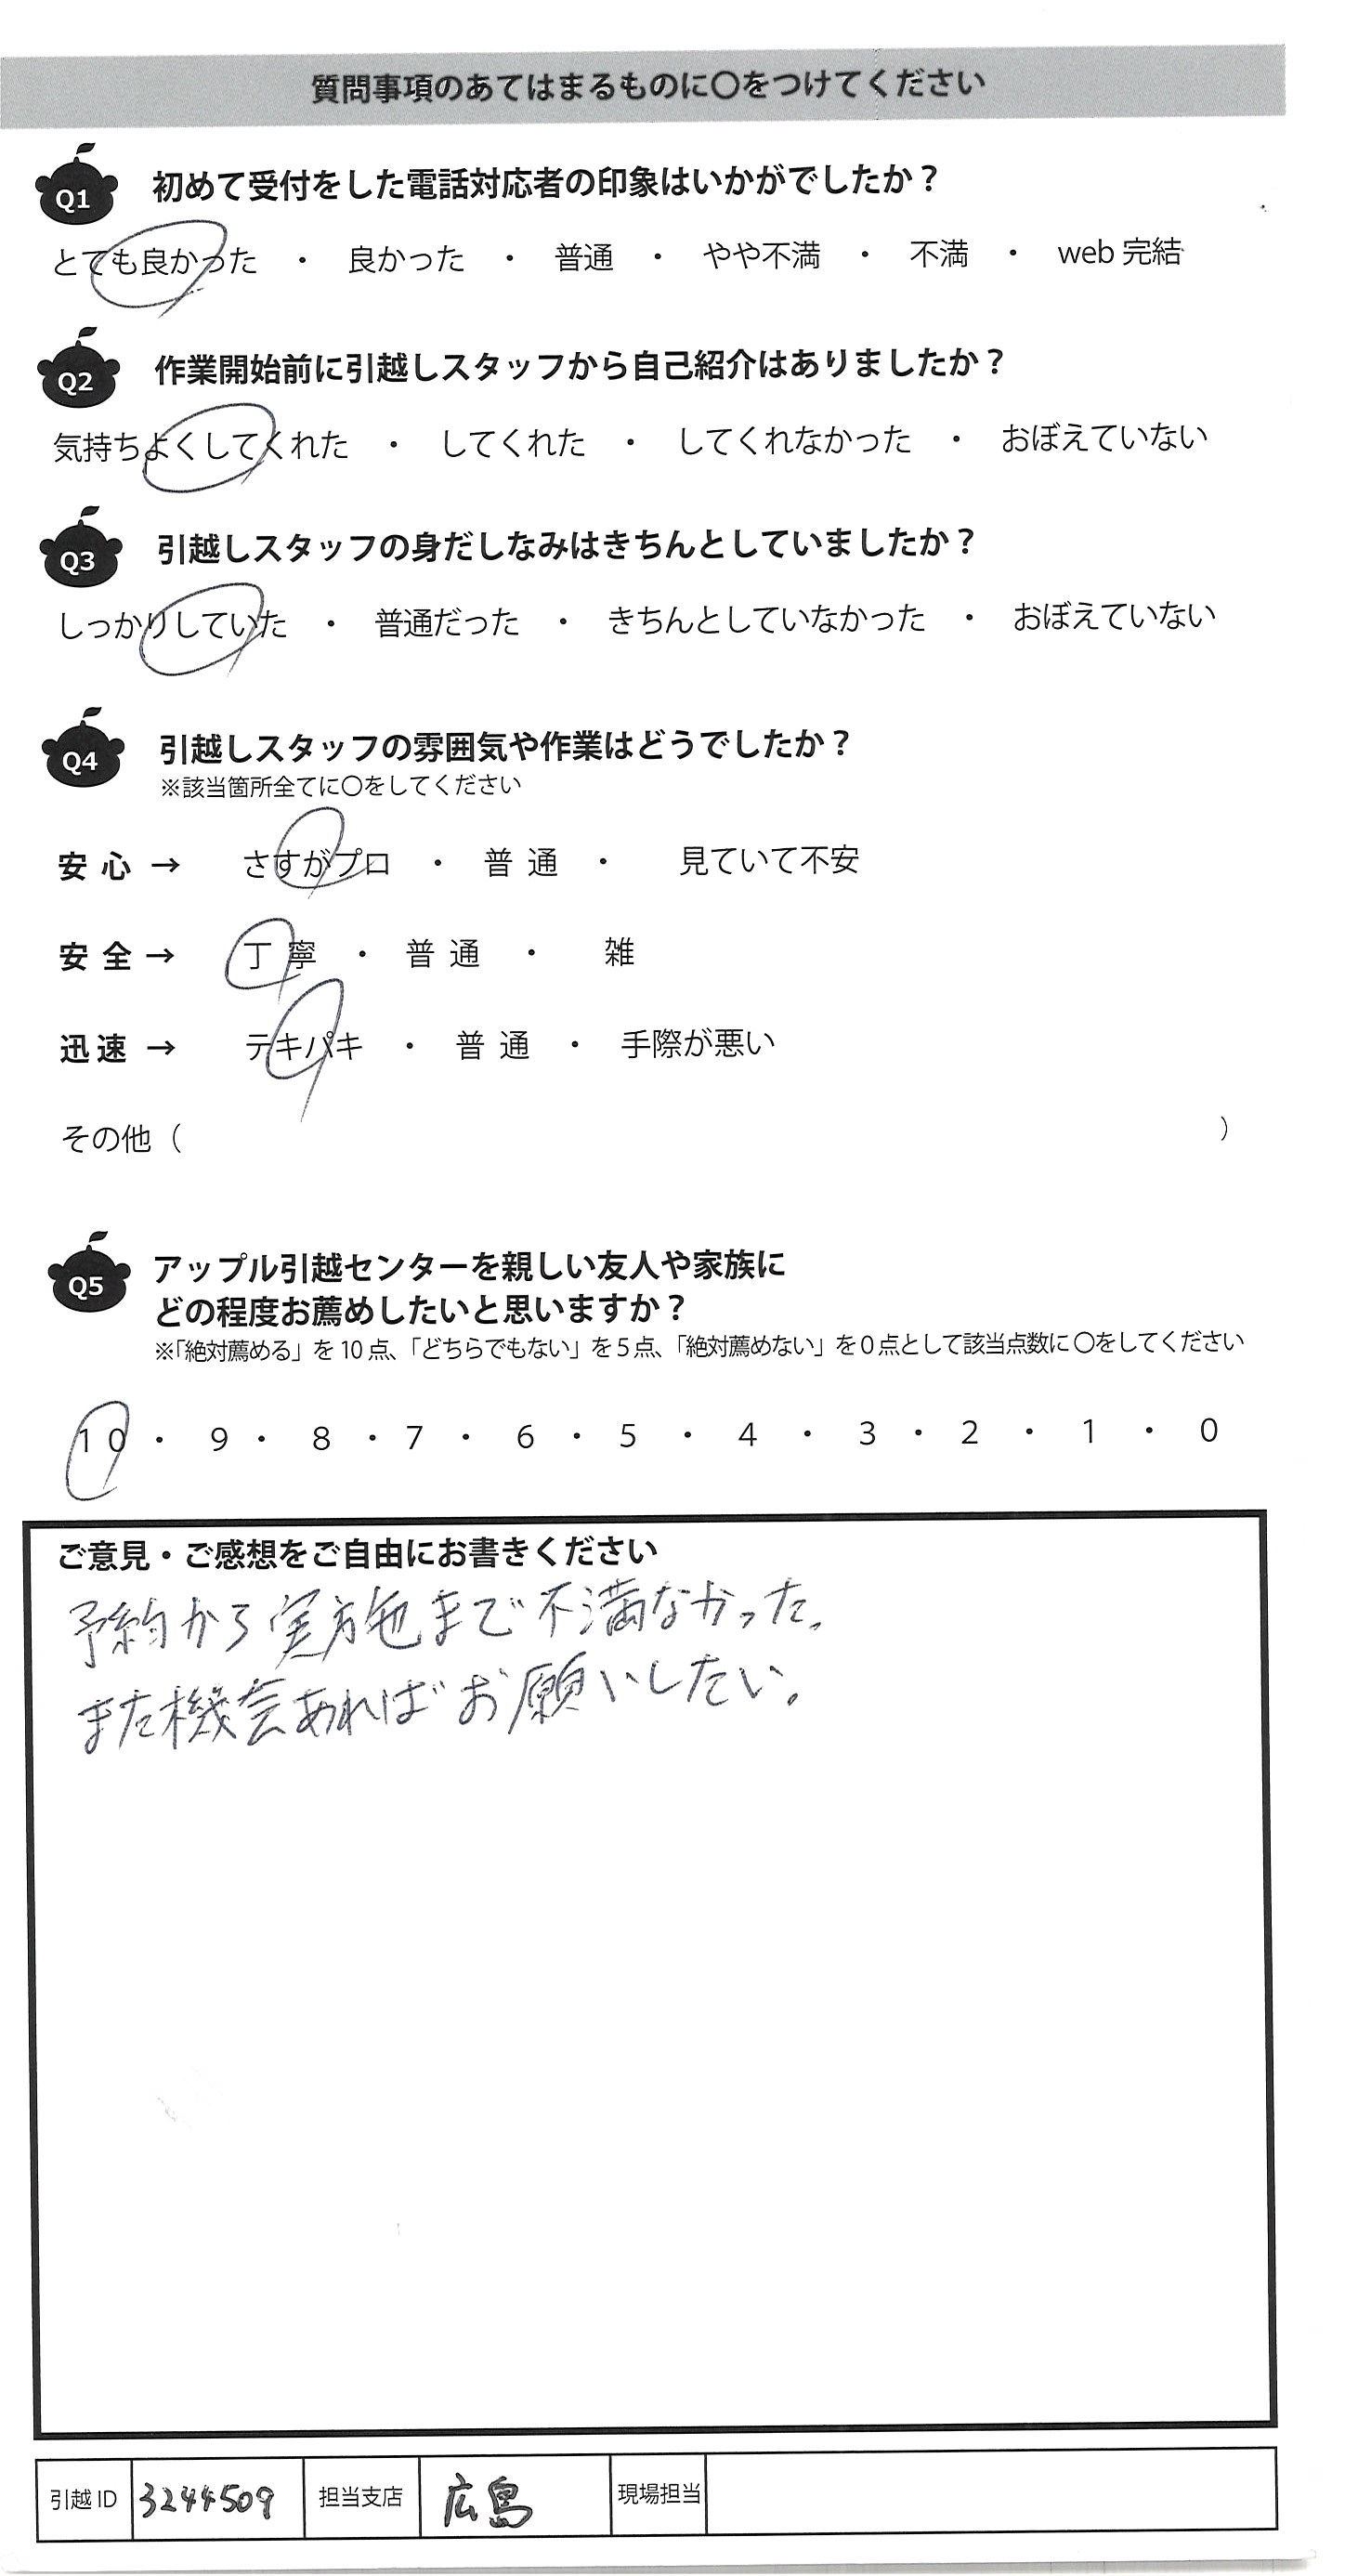 質問事項のあてはまるものに〇をつけてください
Q1 初めて受付をした電話対応者の印象はいかがでしたか？
とても良かった ・ 良かった ・ 普通 ・ やや不満 ・ 不満 ・ web 完結
Q2 作業開始前に引越しスタッフから自己紹介はありましたか？
気持ちよくしてくれた ・ してくれた ・ してくれなかった ・ おぼえていない
Q3 引越しスタッフの身だしなみはきちんとしていましたか？
しっかりしていた ・ 普通だった ・ きちんとしていなかった ・ おぼえていない
Q4 引越しスタッフの雰囲気や作業はどうでしたか？
※該当箇所全てに〇をしてください
安心 → さすがプロ ・ 普通 ・ 見ていて不安
安全 → 丁寧 ・ 普通 ・ 雑
迅速 → テキパキ ・ 普通 ・ 手際が悪い
その他（ ）
Q5 アップル引越センターを親しい友人や家族に
どの程度お薦めしたいと思いますか？
※「絶対薦める」を 10 点、「どちらでもない」を 5 点、「絶対薦めない」を 0 点として該当点数に 〇をしてください
10 ・ 9 ・ 8 ・ 7 ・ 6 ・ 5 ・ 4 ・ 3 ・ 2 ・ 1 ・ 0
ご意見・ご感想をご自由にお書きください
予約から実施まで不満なかった。
また機会あればお願いしたい。
引越 ID 3244509 担当支店 広島 現場担当